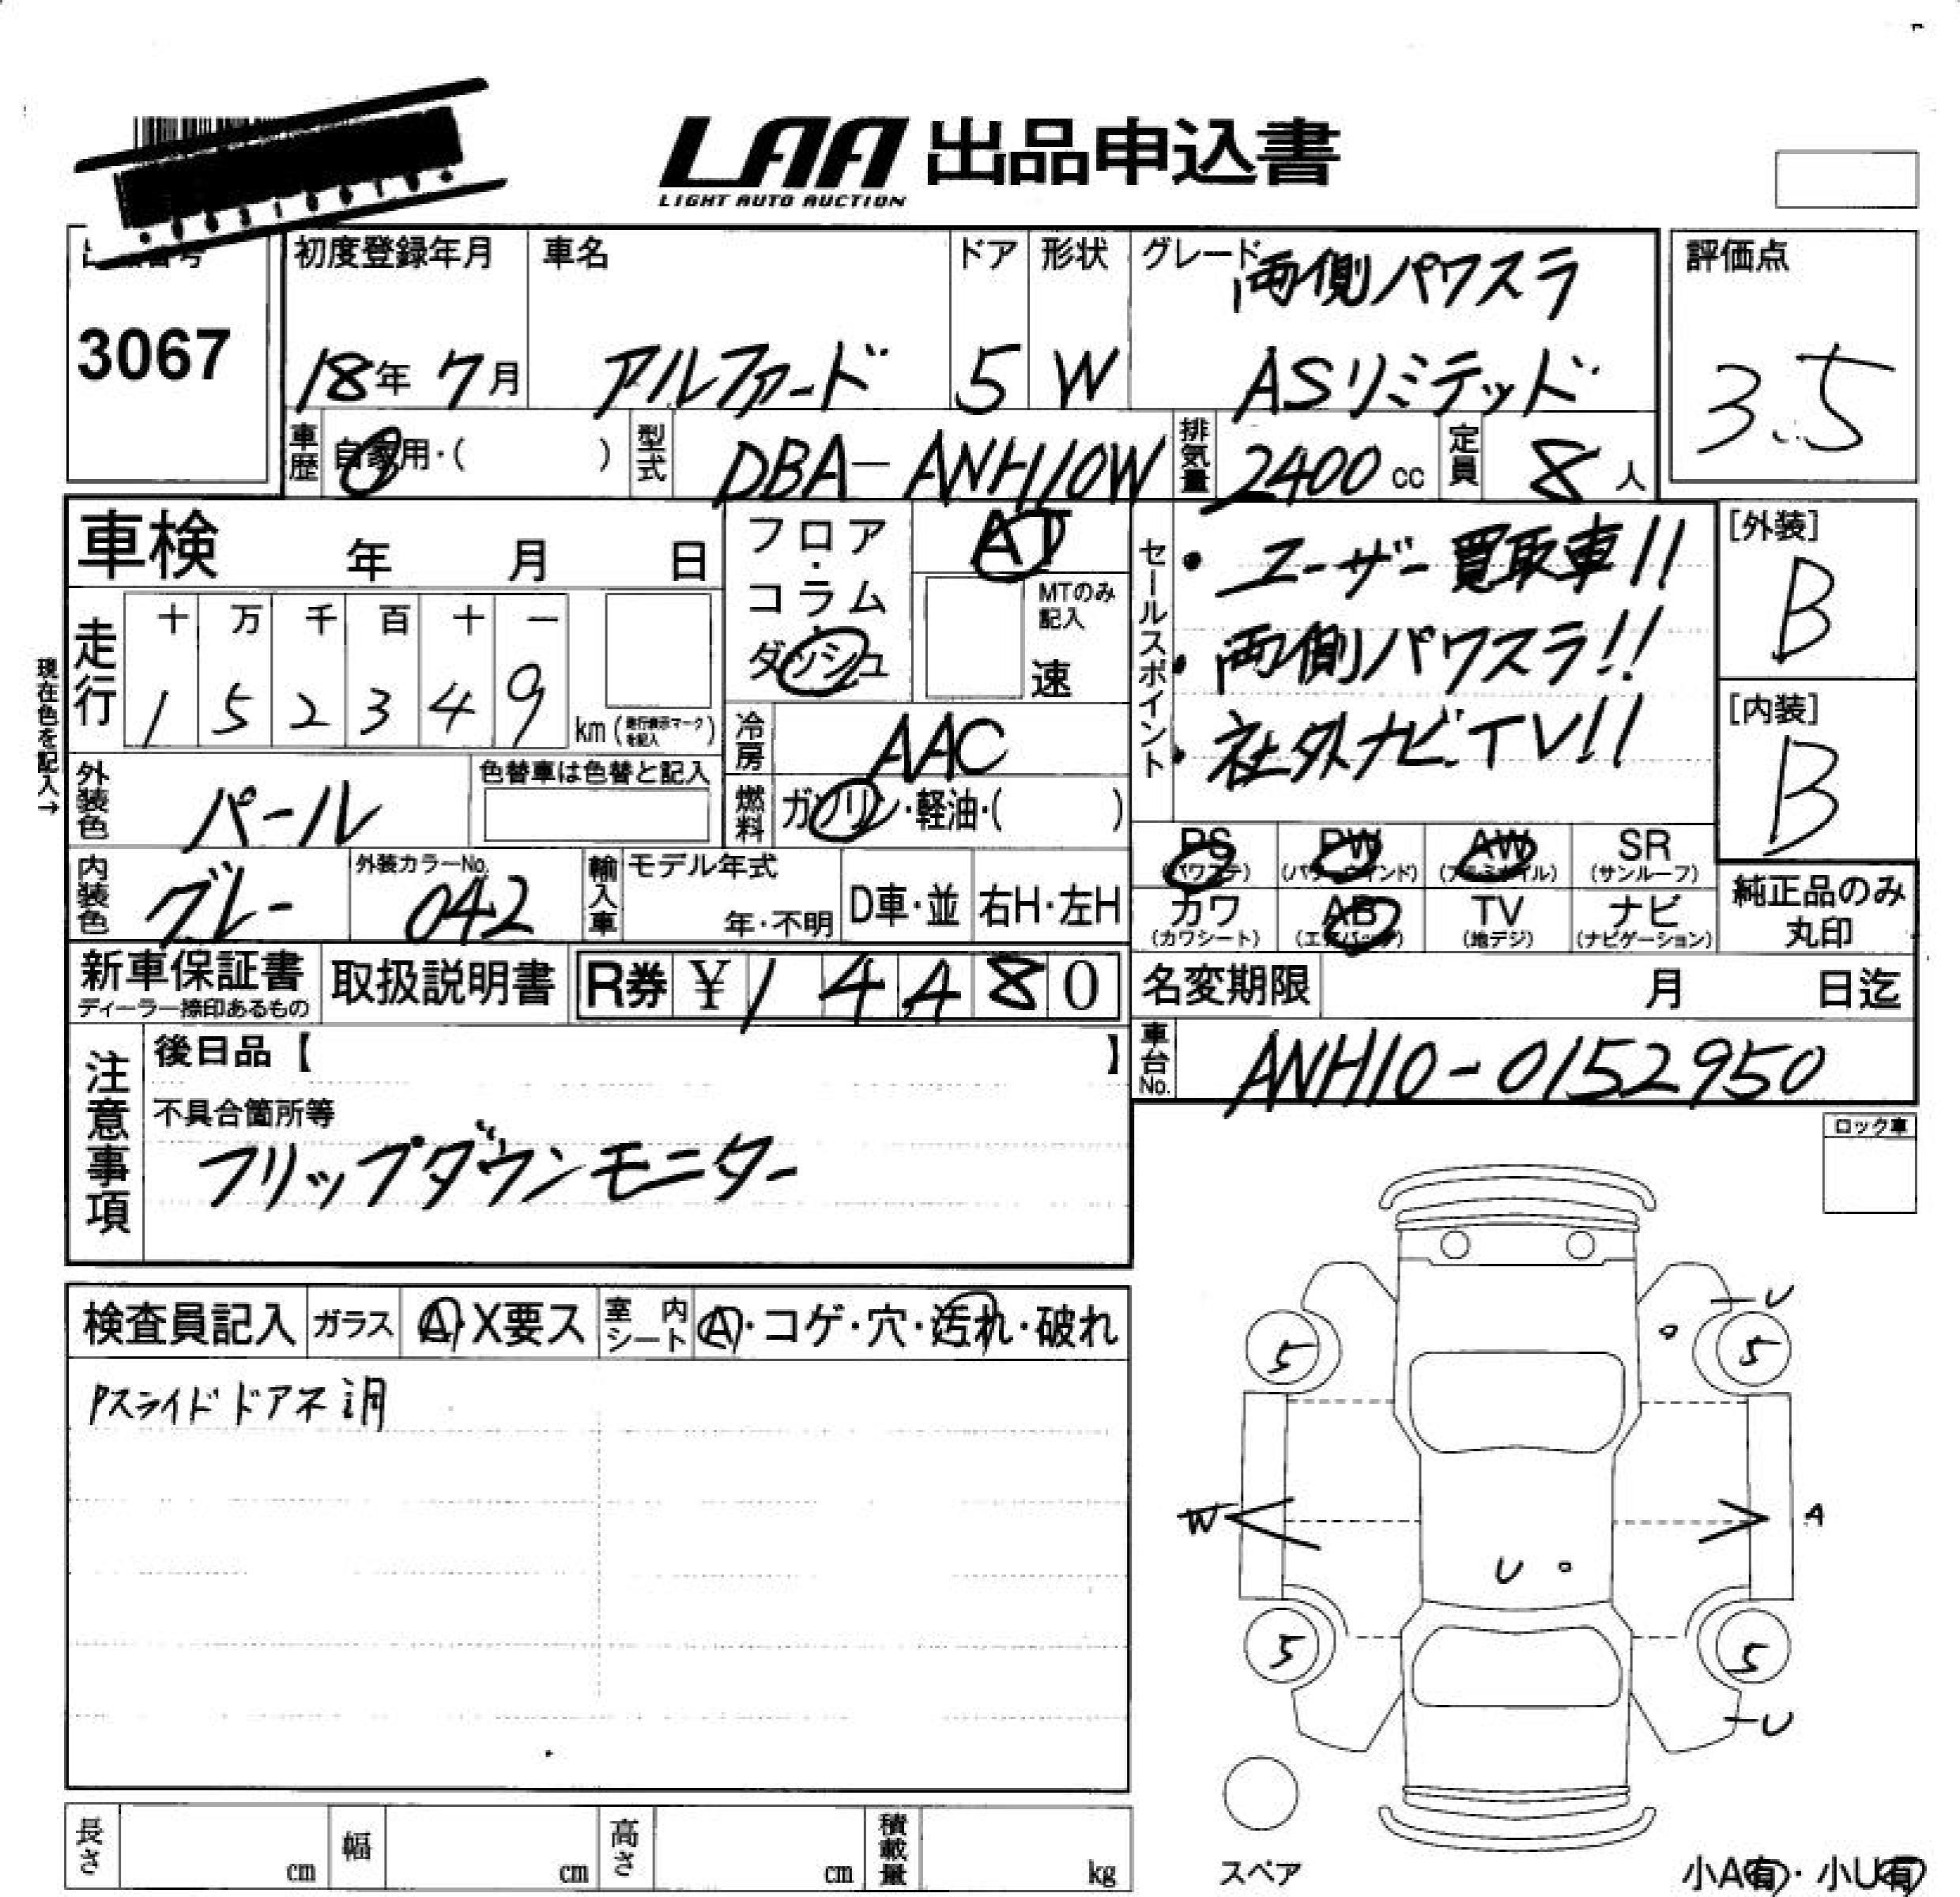 LAA 出品申込書
LIGHT AUTO AUCTION
3067
初度登録年月
18年 7月
車名
アルファード
ドア
5
形状
W
グレード
両側パワスラ
ASリミテッド
評価点
3.5
車歴
自家用・( )
型式
DBA-ANH10W
排気量
2400 cc
定員
8 人
車検 年 月 日
フロア・コラム・ダッシュ
AT
MTのみ記入
速
セールスポイント
・ユーザー買取車!!
・両側パワスラ!!
・社外ナビ.TV!!
[外装]
B
[内装]
B
現在色を記入→
走行
十 万 千 百 十 一
1 5 2 3 4 9
km (走行表示マークを記入)
冷房
AAC
外装色
パール
色替車は色替と記入
燃料
ガソリン・軽油・( )
PS AW SR
(パワステ) (サンルーフ)
PW
内装色
グレー
外装カラーNo.
042
輸入車
モデル年式
年・不明
D車・並
右H・左H
カワ AB TV ナビ
(カワシート) (エアバッグ) (地デジ) (ナビゲーション)
純正品のみ
丸印
新車保証書
ディーラー捺印あるもの
取扱説明書
R券 ¥ 1 4 4 8 0
名変期限 月 日迄
車台No.
ANH10-0152950
注意事項
後日品【 】
不具合箇所等
フリップダウンモニター
ロック車
検査員記入 ガラス A・X要ス 室内シート A・コゲ・穴・汚れ・破れ
Pスライドドア不調
U
5 5
W A
U
5 5
U
スペア
長さ cm 幅 cm 高さ cm 積載量 kg
小A有・小U有